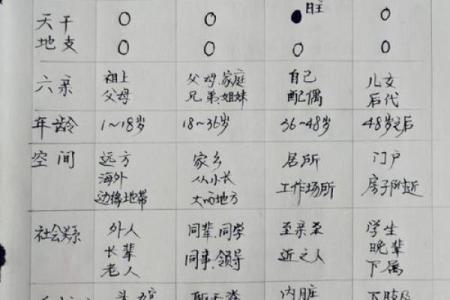 天干 旺
地支
六亲 祖上 父母.家庭 自己 儿女
父母 兄弟.姐妹 配偶 后代
年龄 1~18岁 18~36岁 36~48岁 48岁之后
空间 远方 家乡 居所 门户
海外 从小长 工作场所 房子附近
边缘地带 大的地方
社会关系 外人 同辈.同学 至亲至 学生
长辈 同事.领导 近之人 晚辈
老人 下属
头 内脏 下肢